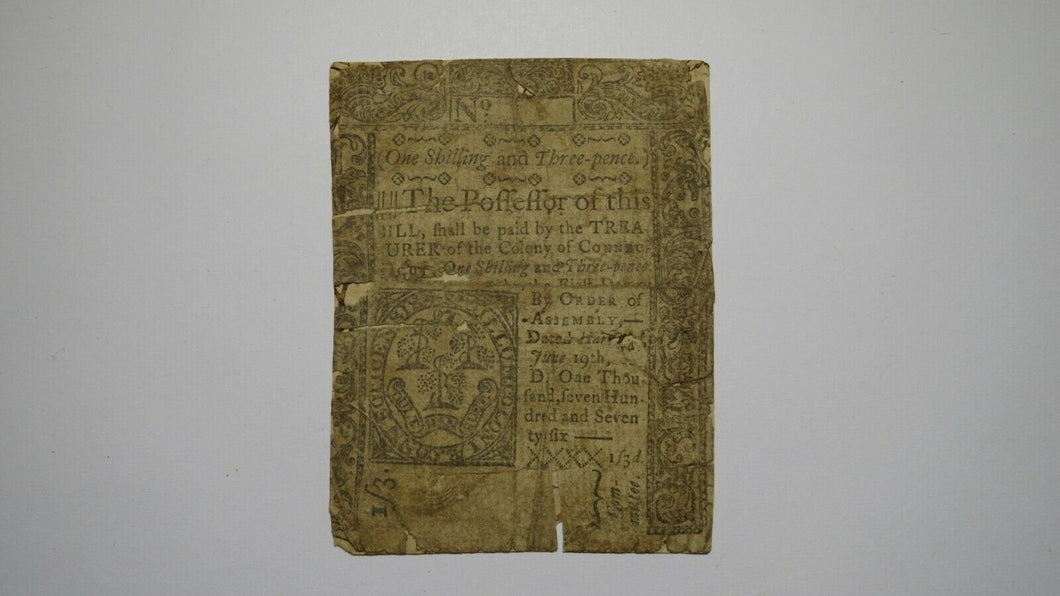 No
(One Shilling and Three-pence.)
The Poſſeſſor of this
ILL, ſhall be paid by the TREA
URER of the Colony of CONNEC-
CUT, One Shilling and Three-pence
By ORDER of
ASSEMBLY,—
Dated
June 19th,
D. One Thou
ſand, ſeven Hun-
dred and Seven
ty-ſix ——
XXXX 1ſ3d.
1ſ3.
Com-
mittee.